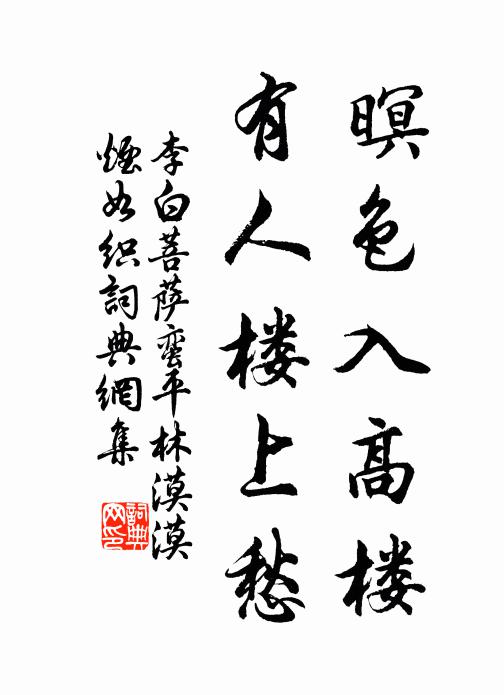 暝色入高楼
有人楼上愁
李白菩萨蛮平林漠漠
烟如织詞典網集
詞典网印